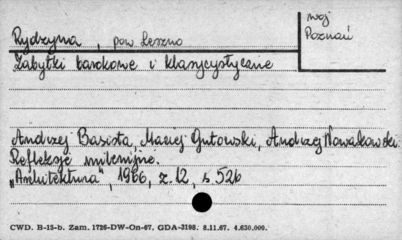 Rydzyna, pow. Leszno
woj.
Poznań
Zabytki barokowe i klasycystyczne
Andrzej Basista, Maciej Gutowski, Andrzej Nowakowski.
Refleksje milenijne.
"Architektura", 1966, z. 12, s. 526
CWD. B-13-b. Zam. 1726-DW-On-67. GDA-3198. 8.11.67. 4.630.000.